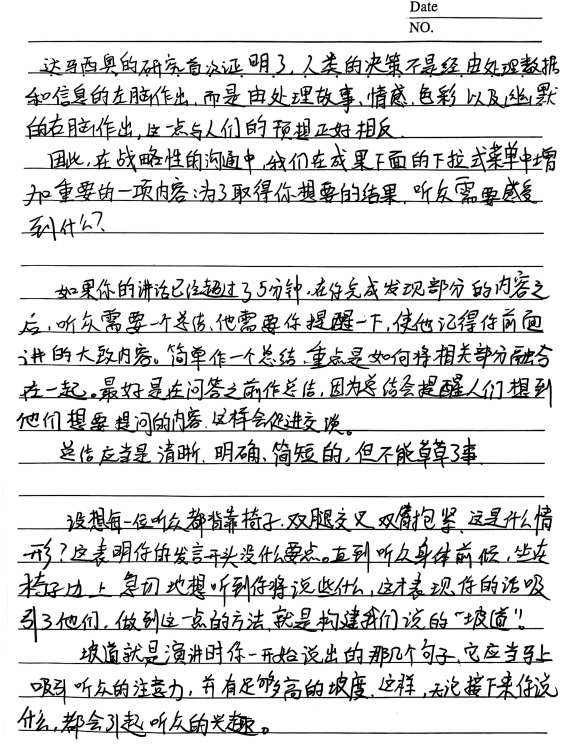 Date
NO.
达马西奥的研究首次证明了,人类的决策不是经由处理数据
和信息的左脑作出,而是由处理故事、情感、色彩以及幽默
的右脑作出,这一点与人们的预想正好相反.
因此,在战略性的沟通中,我们在成果下面的下拉式菜单中增
加重要的一项内容:为了取得你想要的结果,听众需要感受
到什么?
如果你的讲话已经超过了5分钟,在你完成发现部分的内容之
后,听众需要一个总结,他需要你提醒一下,使他记得你前面
讲的大致内容。简单作一个总结,重点是如何将相关部分融合
在一起。最好是在问答之前作总结,因为总结会提醒人们想到
他们想要提问的内容.这样会促进交谈。
总结应当是清晰、明确、简短的,但不能草草了事
设想每一位听众都背靠椅子,双腿交叉,双臂抱紧,这是什么情
形?这表明你的发言开头没什么要点。直到听众身体前倾,坐在
椅子边上,急切地想听到你将说些什么,这才表现你的话吸
引了他们,做到这一点的方法,就是构建我们说的“坡道”。
坡道就是演讲时你一开始说出的那几个句子,它应当马上
吸引听众的注意力,并有足够高的坡度,这样,无论接下来你说
什么,都会引起听众的兴趣。